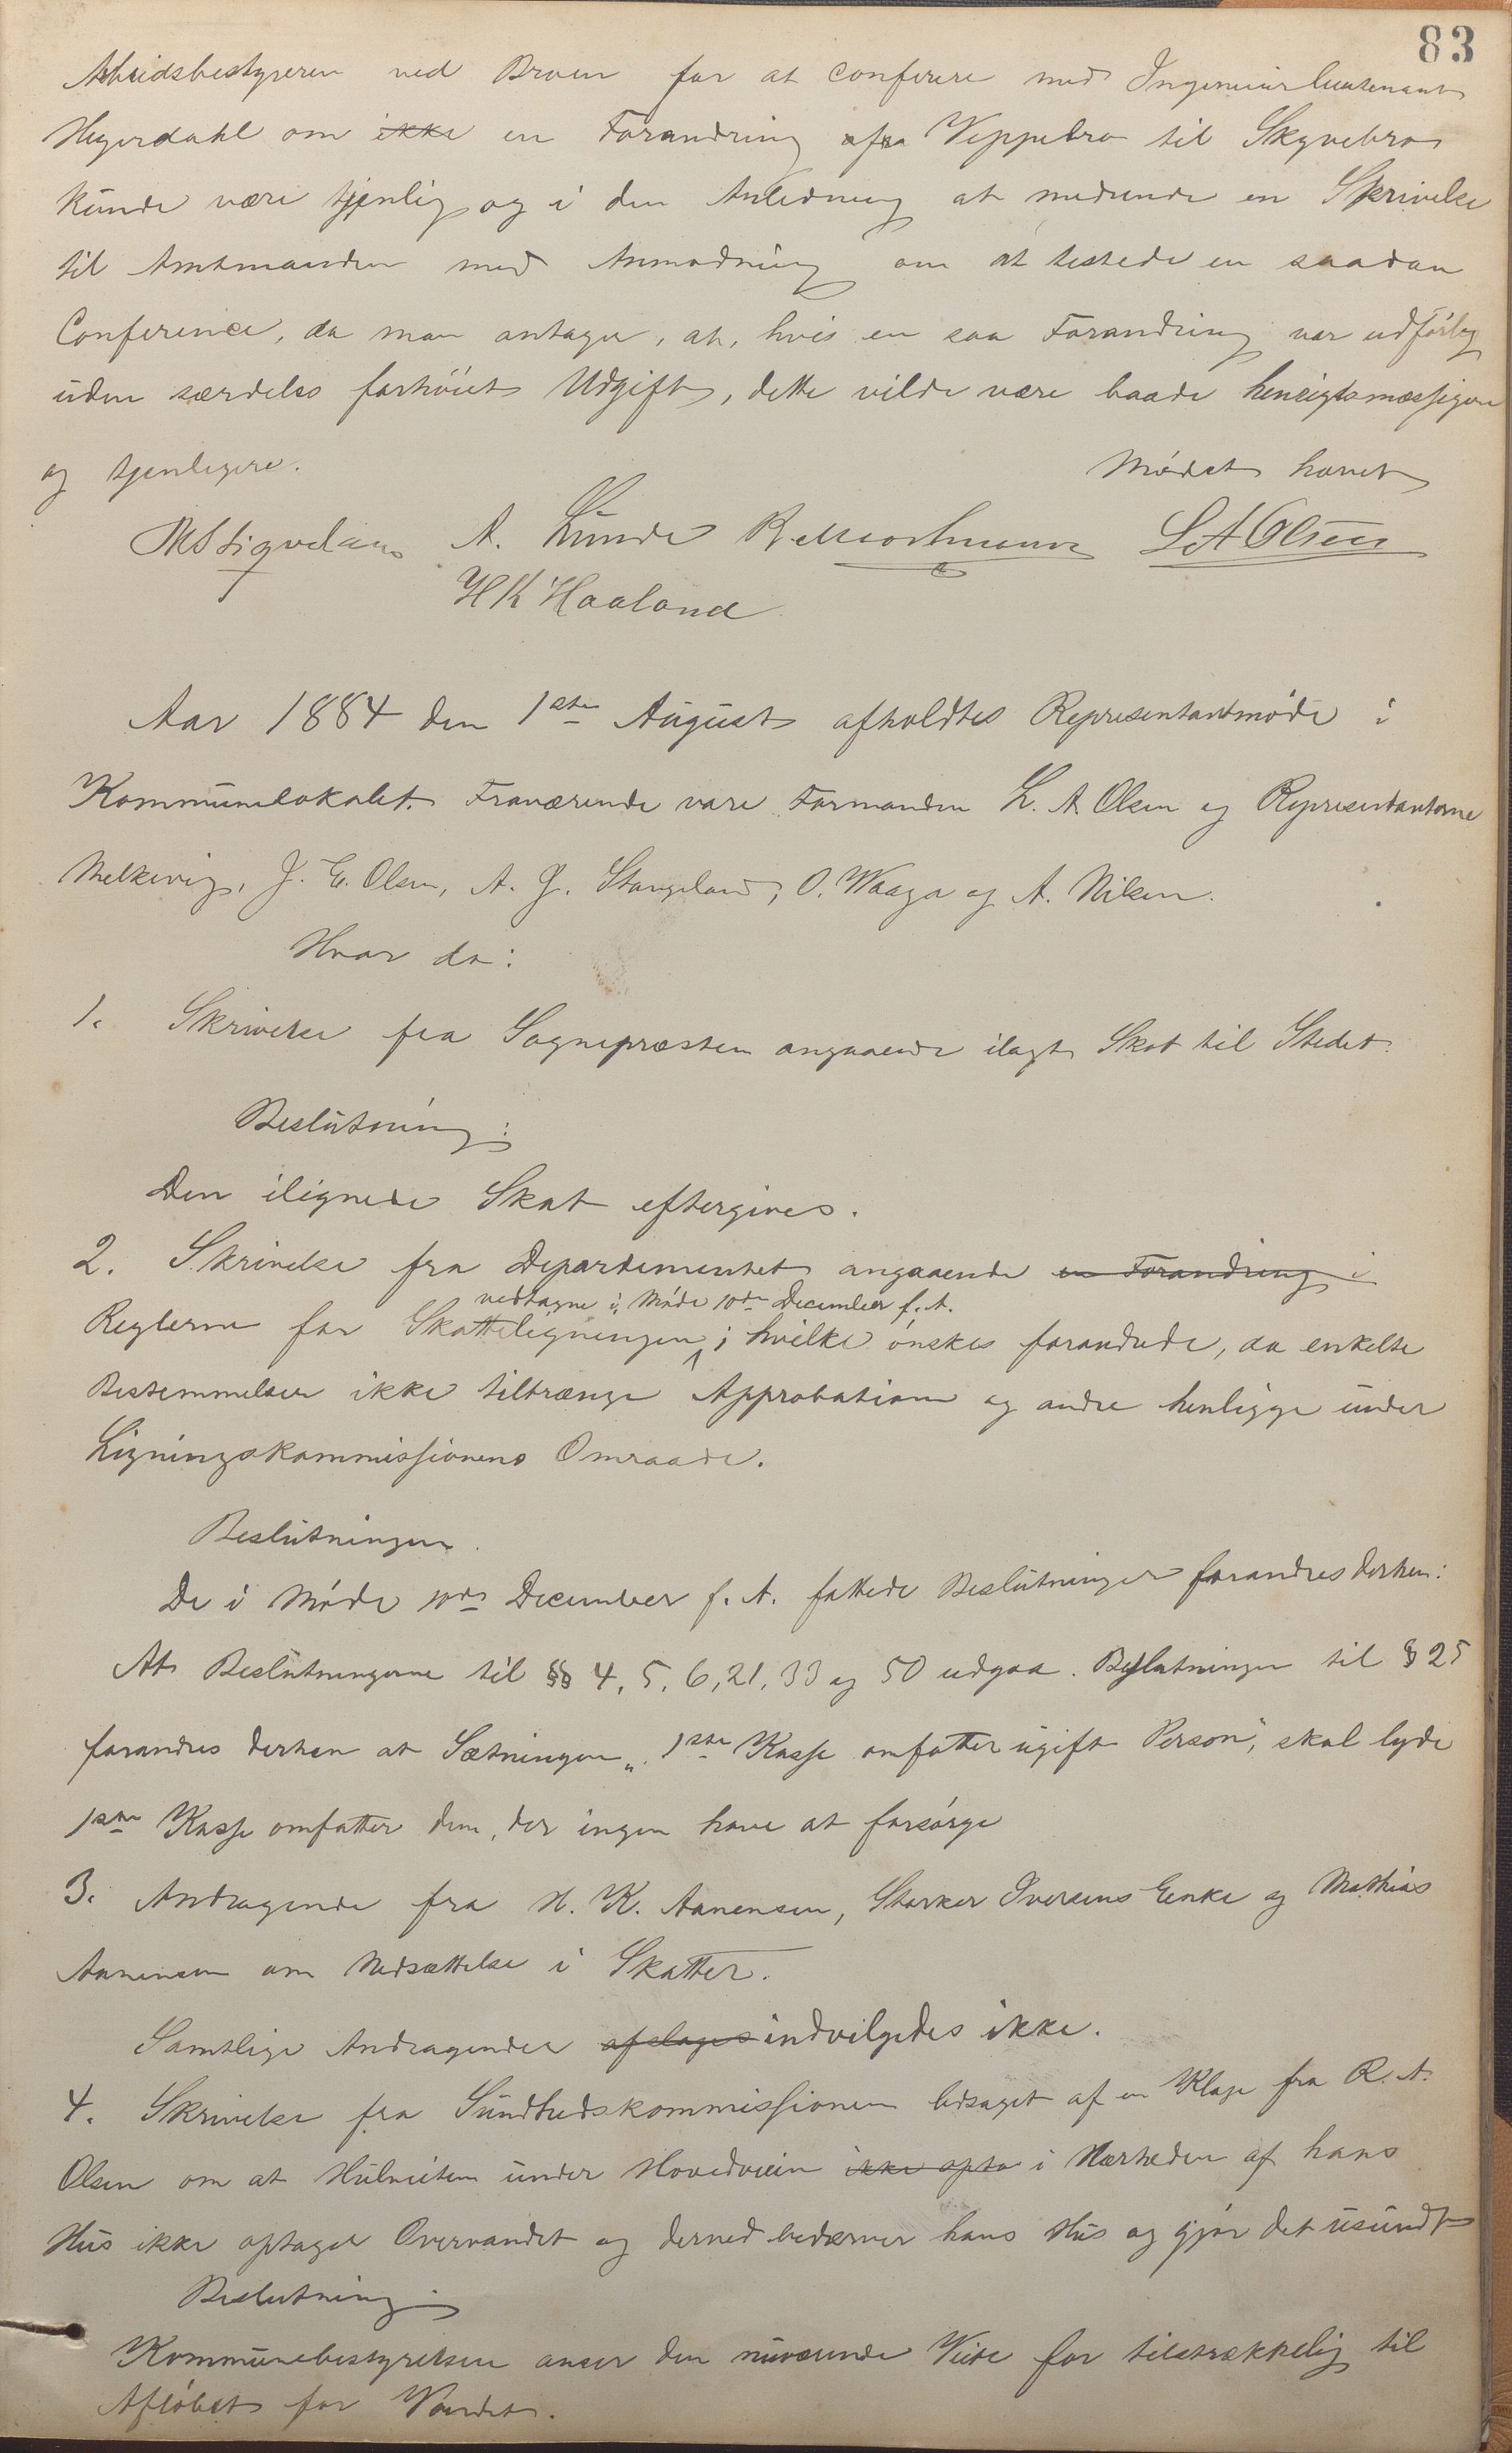 83
Arbeidsbestyreren ved Broen for at conferere med Ingeniørlieutenant
Hegerdahl om ikke en Forandring af Vippebro til Skyvebro
kunde være tjenlig og i den Anledning at medsende en Skrivelse
til Amtmanden med Anmodning om at tilstede en saadan
Conference, da man antager, at, hvis en saa Forandring var udførlig
uden særdeles forhøiet Udgift, dette vilde være baade hensigtsmæssigere
og tjenligere.
Mødet hævet
A. Lunde L A Olsen
H K Haaland
Aar 1884 den 1ste August afholdtes Representantmøde i
Kommunelokalet. Fraværende vare Formanden L. A. Olsen og Representanterne
Melkevig, J. E. Olsen, A. G. Stangeland, O. Waage og A. Nilsen.
Hvor da:
1. Skrivelse fra Sognepræsten angaaende ilagt Skat til Stedet.
Beslutning:
Den ilignede Skat eftergives.
2. Skrivelse fra Departementet angaaende en Forandring i
vedtagne i Møde 10de December f. A.
Reglerne for Skatteligningen; hvilke ønskes forandrede, da enkelte
Bestemmelser ikke tiltrænge Approbation og andre henligge under
Ligningskommissionens Omraade.
Beslutningen.
De i Møde 10de December f. A. fattede Beslutninger forandres derhen:
At Beslutningerne til §§ 4, 5, 6, 21, 33 og 50 udgaa. Beslutningen til § 25
forandres derhen at Sætningen „1ste Kasse omfatter ugift Person", skal lyde
1ste Kasse omfatter dem, der ingen have at forsørge
3. Andragende fra H. K. Aanensen, Storker Iversens Enke og Mathias
Aanensen om Nedsættelse i Skatter.
Samtlige Andragender afslages indvilgedes ikke.
4. Skrivelse fra Sundhedskommissionen ledsaget af en Klage fra R. A.
Olsen om at Hulveiten under Hovedveien ikke opta i Nærheden af hans
Hus ikke optager Overvandet og derved bedærver hans Hus og gjør det usundt
Beslutning
Kommunebestyrelsen anser den nuværende Veite for tilstrækkelig til
Afløbet for Vandet.